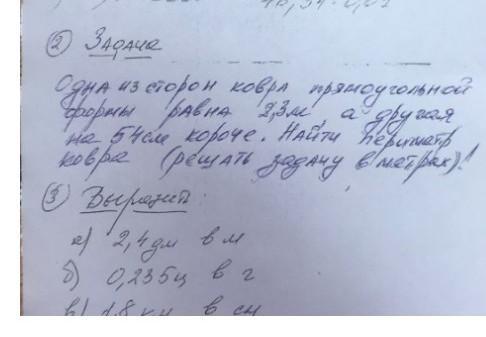 ② Задача
Одна из сторон ковра прямоугольной
формы равна 2,3м, а другая
на 54см короче. Найти периметр
ковра (решать задачу в метрах)!
③ Выразить:
а) 2,4дм в м
б) 0,235ц в г
в) 1,8 км в см